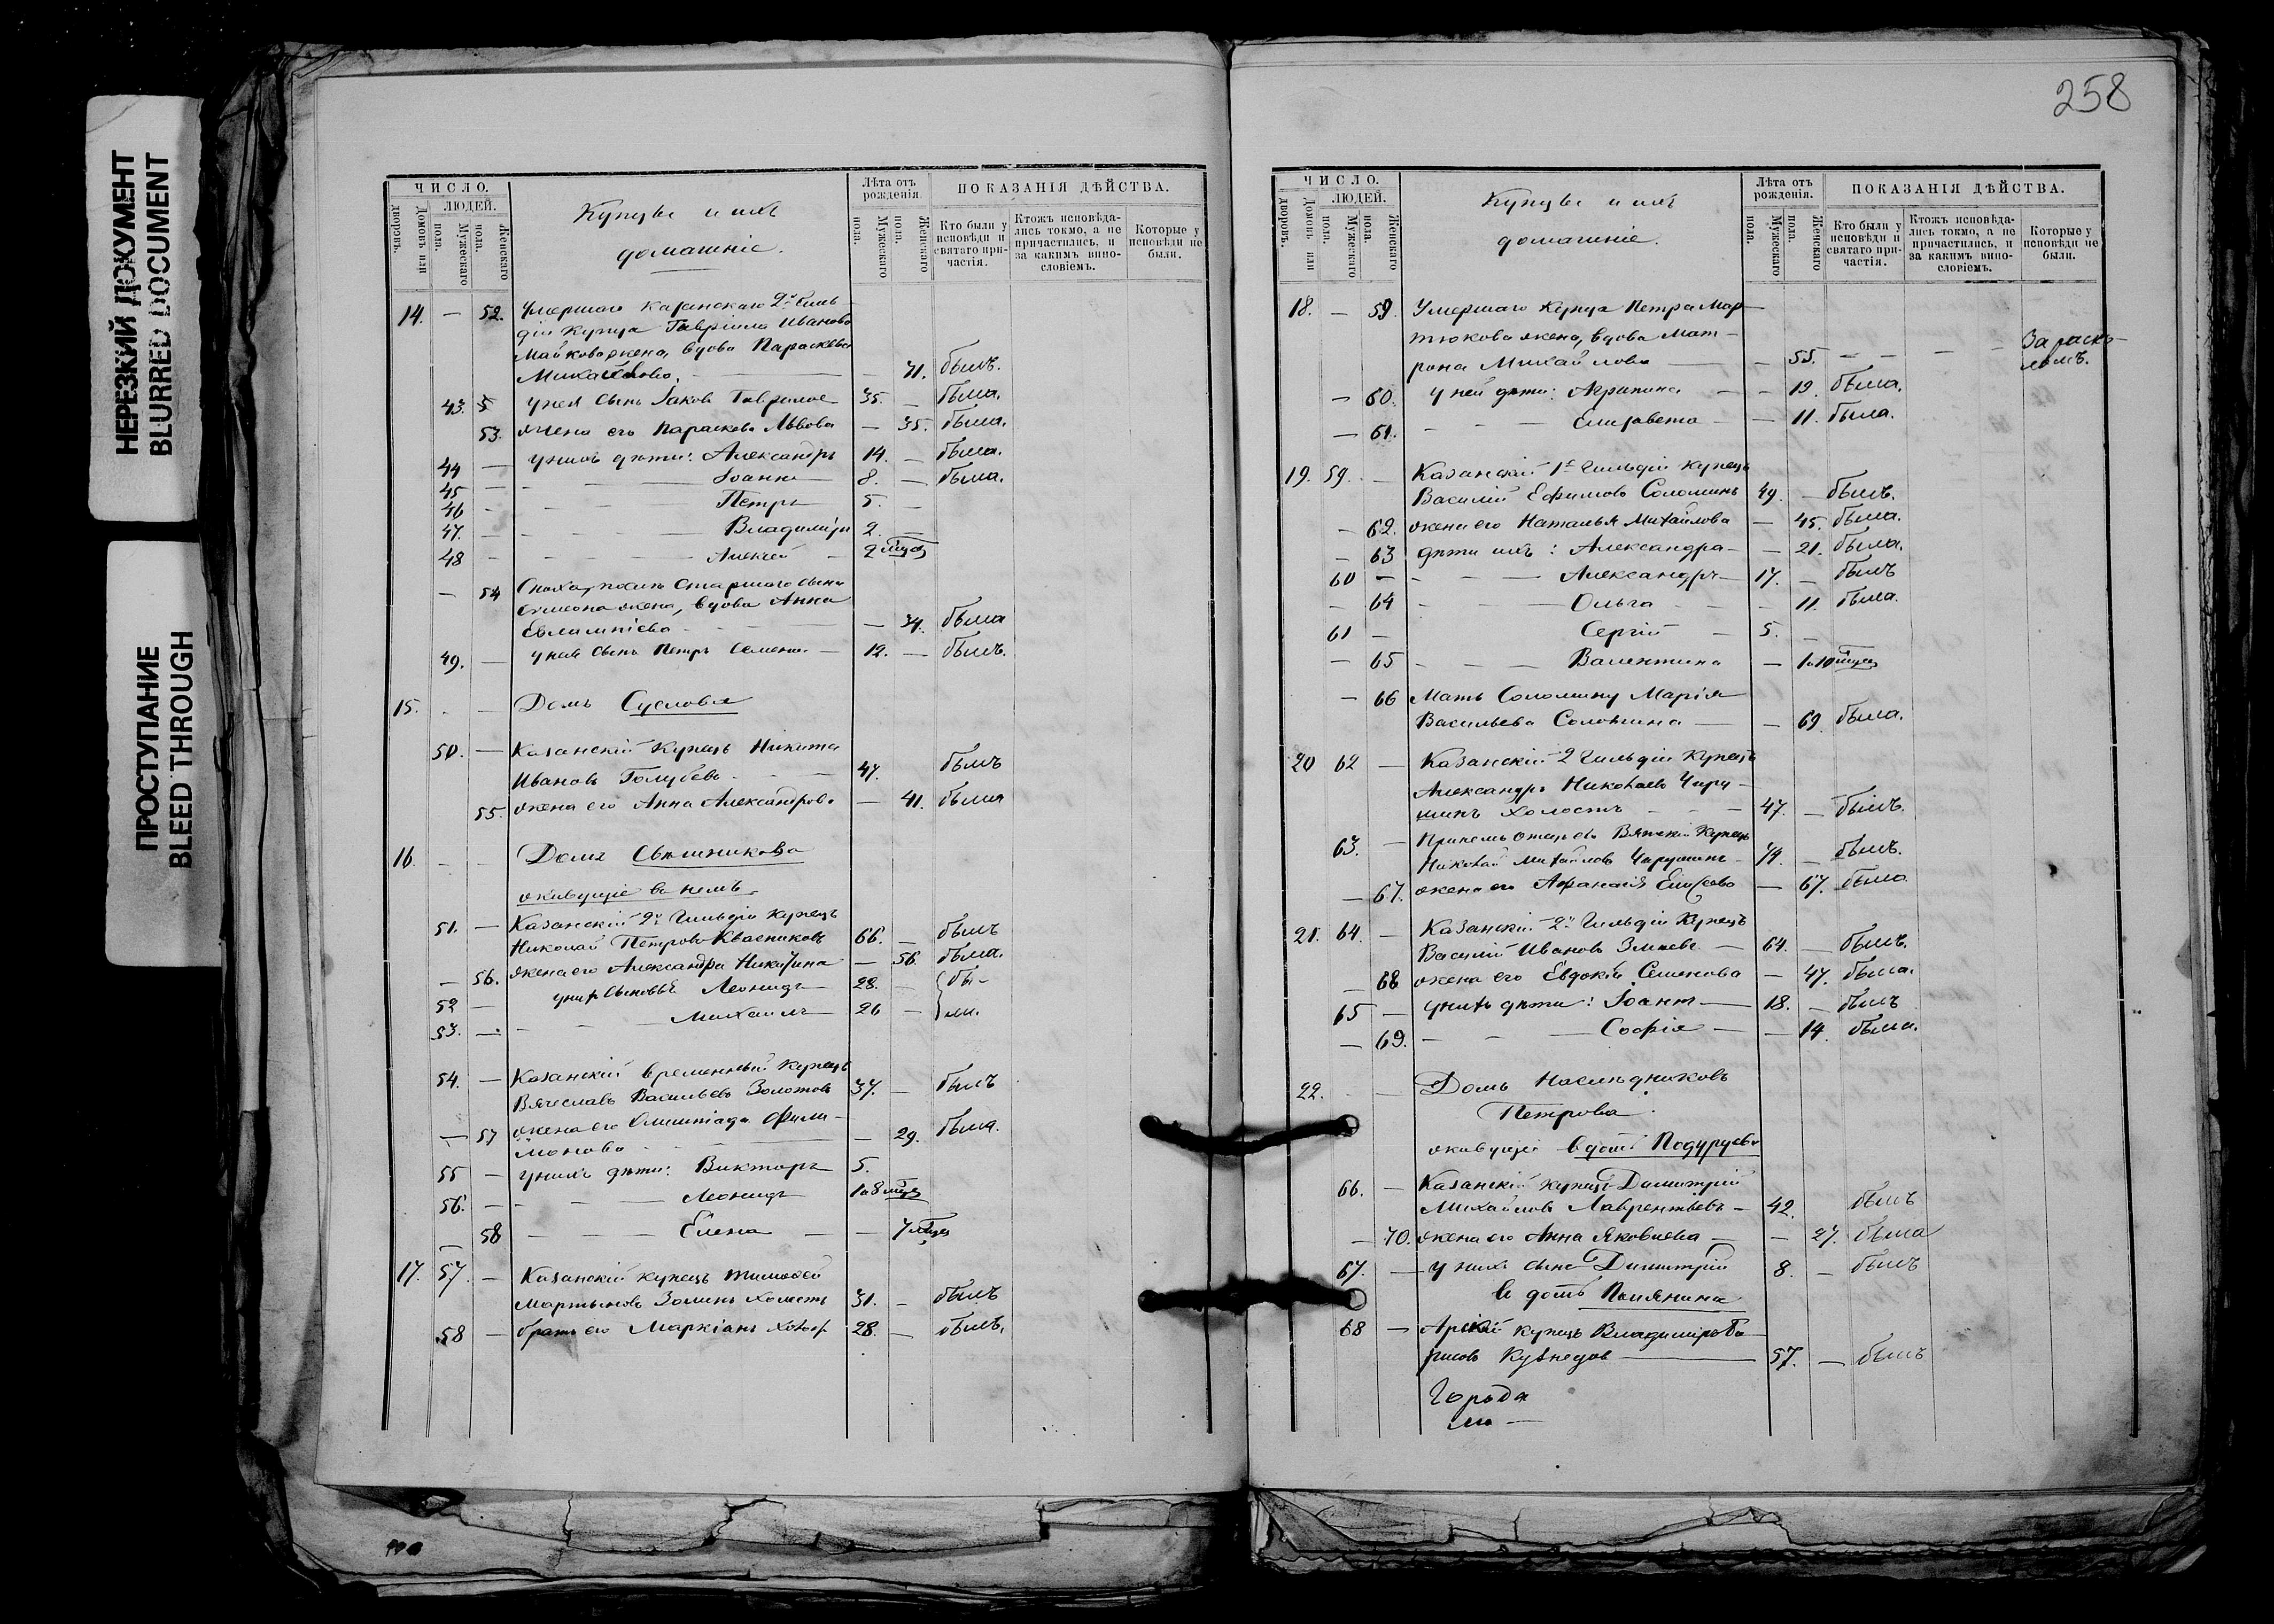 НЕРЕЗКИЙ ДОКУМЕНТ
BLURRED DOCUMENT
ПРОСТУПАНИЕ
BLEED THROUGH
ЧИСЛО.
ЛЮДЕЙ.
Домовъ или дворовъ.
Мужескаго пола.
Женскаго пола.
Купцы и ихъ
домашніе.
Лѣта отъ рожденія.
Мужескаго пола.
Женскаго пола.
ПОКАЗАНІЯ ДѢЙСТВА.
Кто были у исповѣди и святаго при-частія.
Ктожъ исповѣда-лись токмо, а не причастились, и за какимъ вино-словіемъ.
Которые у исповѣди не были.
14. — 52. Умершаго Казанскаго 2й Гиль-
діи Купца Гавріила Иванова
Майкова жена, вдова Параскева
Михайлова. — 71. былъ.
43. У нея сынъ Іаковъ Гаврилов 35. — была.
53. жена его Параскева Львова — 35. была.
44 — У нихъ дѣти: Александръ 14. — была.
45 — Іоаннъ 8. — была.
46 — Петръ 5. —
47. — Владиміръ 2.
48 — Алексѣй — 2 мѣся
— 54 Сноха, жена старшаго сына
Симеона жена, вдова Анна
Евлампіева — 34. была
49. — у ней сынъ Петръ Семенъ — 12. — былъ.
15. — Домъ Суслова
50. — Казанскій Купецъ Никита
Ивановъ Голубевъ 47. былъ
55. жена его Анна Александрова — 41. была
16. — — Домъ Свѣшникова
живущіе въ немъ.
51. — Казанскій 2й Гильдіи Купецъ
Николай Петровъ Квасниковъ 66. — былъ
— 56. жена его Александра Никитина — 56. была.
52 — у нихъ сыновья Леонидъ 28. — бы-
53. — Михаилъ 26 — ли.
54. — Казанскій временный Купецъ
Вячеславъ Васильевъ Золотовъ 37. — былъ
— 57 жена его Олимпіада Фили-
монова — 29. была.
55 — У нихъ дѣти: Викторъ 5.
56. — Леонидъ 1 и 8 мѣся
— 58 — Елена — 7 мѣсяц
17. 57. — Казанскій купецъ Тимофей
Мартыновъ Золинъ Холостъ 31. — былъ
58 — братъ его Маркіанъ Холост 28. — былъ.
258
ЧИСЛО.
ЛЮДЕЙ.
Домовъ или дворовъ.
Мужескаго пола.
Женскаго пола.
Купцы и ихъ
домашніе.
Лѣта отъ рожденія.
Мужескаго пола.
Женскаго пола.
ПОКАЗАНІЯ ДѢЙСТВА.
Кто были у исповѣди и святаго при-частія.
Ктожъ исповѣда-лись токмо, а не причастились, и за какимъ вино-словіемъ.
Которые у исповѣди не были.
18. — 59. Умершаго Купца Петра Мар-
тюкова жена, вдова Мат-
рона Михайлова — 55. — — — За раско-
ломъ.
— 60. У ней дѣти: Агрипина — — 19. была.
— 61. — Елизавета — — 11. была.
19. 59. — Казанскій 1й Гильдіи Купецъ
Василій Ефимовъ Соломинъ 49. — былъ.
— 62. жена его Наталья Михайлова — 45. была.
— 63 дѣти ихъ: Александра — — 21. была.
60 — Александръ — 17. — былъ
— 64 — Ольга — — 11. была.
61 — Сергій — 5. —
— 65 — Валентина — 1 и 10 мѣсяц
— 66 Мать Соломину Марія
Васильева Соломина — — 69. была.
20 62 — Казанскій 2 Гильдіи Купецъ
Александръ Николаевъ Чару-
шинъ холостъ — 47. — былъ.
63. — При немъ отецъ его Вятскій Купецъ
Николай Михайловъ Чарушинъ — 74. — былъ.
— 67. жена его Афанасія Елисеева — 67. была
21. 64. — Казанскій 2й Гильдіи Купецъ
Василій Ивановъ Змѣевъ — 64. — былъ.
— 68 жена его Евдокія Семенова — 47. была.
65 — У нихъ дѣти: Іоаннъ — 18. — былъ
— 69. — Софія — — 14. была.
22. — Домъ Наслѣдниковъ
Петрова.
живущіе въ домѣ Подуруева
66. — Казанскій купецъ Димитрій
Михайловъ Лаврентьевъ — 42. былъ
— 70. жена его Анна Яковлева — — 27. была
67. — У нихъ сынъ Димитрій 8. — былъ
Въ домѣ Полянина
68 — Арскій купецъ Владиміръ Бо-
рисовъ Кузнецовъ — 57. — былъ